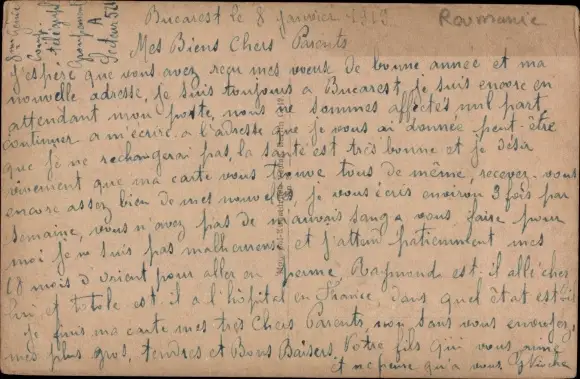 Bucarest le 8 Janvier 1919
Roumanie
8me Génie
Comp.
télégraph
Groupement
A
Secteur 521
Mes Biens Chers Parents
J'espère que vous avez reçu mes voeux de bonne année et ma
nouvelle adresse, Je suis toujours a Bucarest, je suis encore en
attendant mon poste, nous ne sommes affectés nul part,
continuer a m'écrire a l'adresse que je vous ai donnée peut-être
que je ne rechangerai pas, la santé est très bonne et je désir
vivement que ma carte vous trouve tous de même, recevez-vous
encore assez bien de mes nouvelles, je vous écris environ 3 fois par
semaine, vous n'avez pas de mauvais sang a vous faire pour
moi je ne suis pas malheureux et j'attend patiemment mes
18 mois d'orient pour aller en perme, Raymond est-il allé chez
lui, et Totole est-il a l'hôpital en France, dans quel état est-il
Je finis ma carte mes très Chers Parents, non sans vous envoyez
mes plus gros, tendres et Bons Baisers. Votre fils qui vous aime
et ne pense qu'a vous